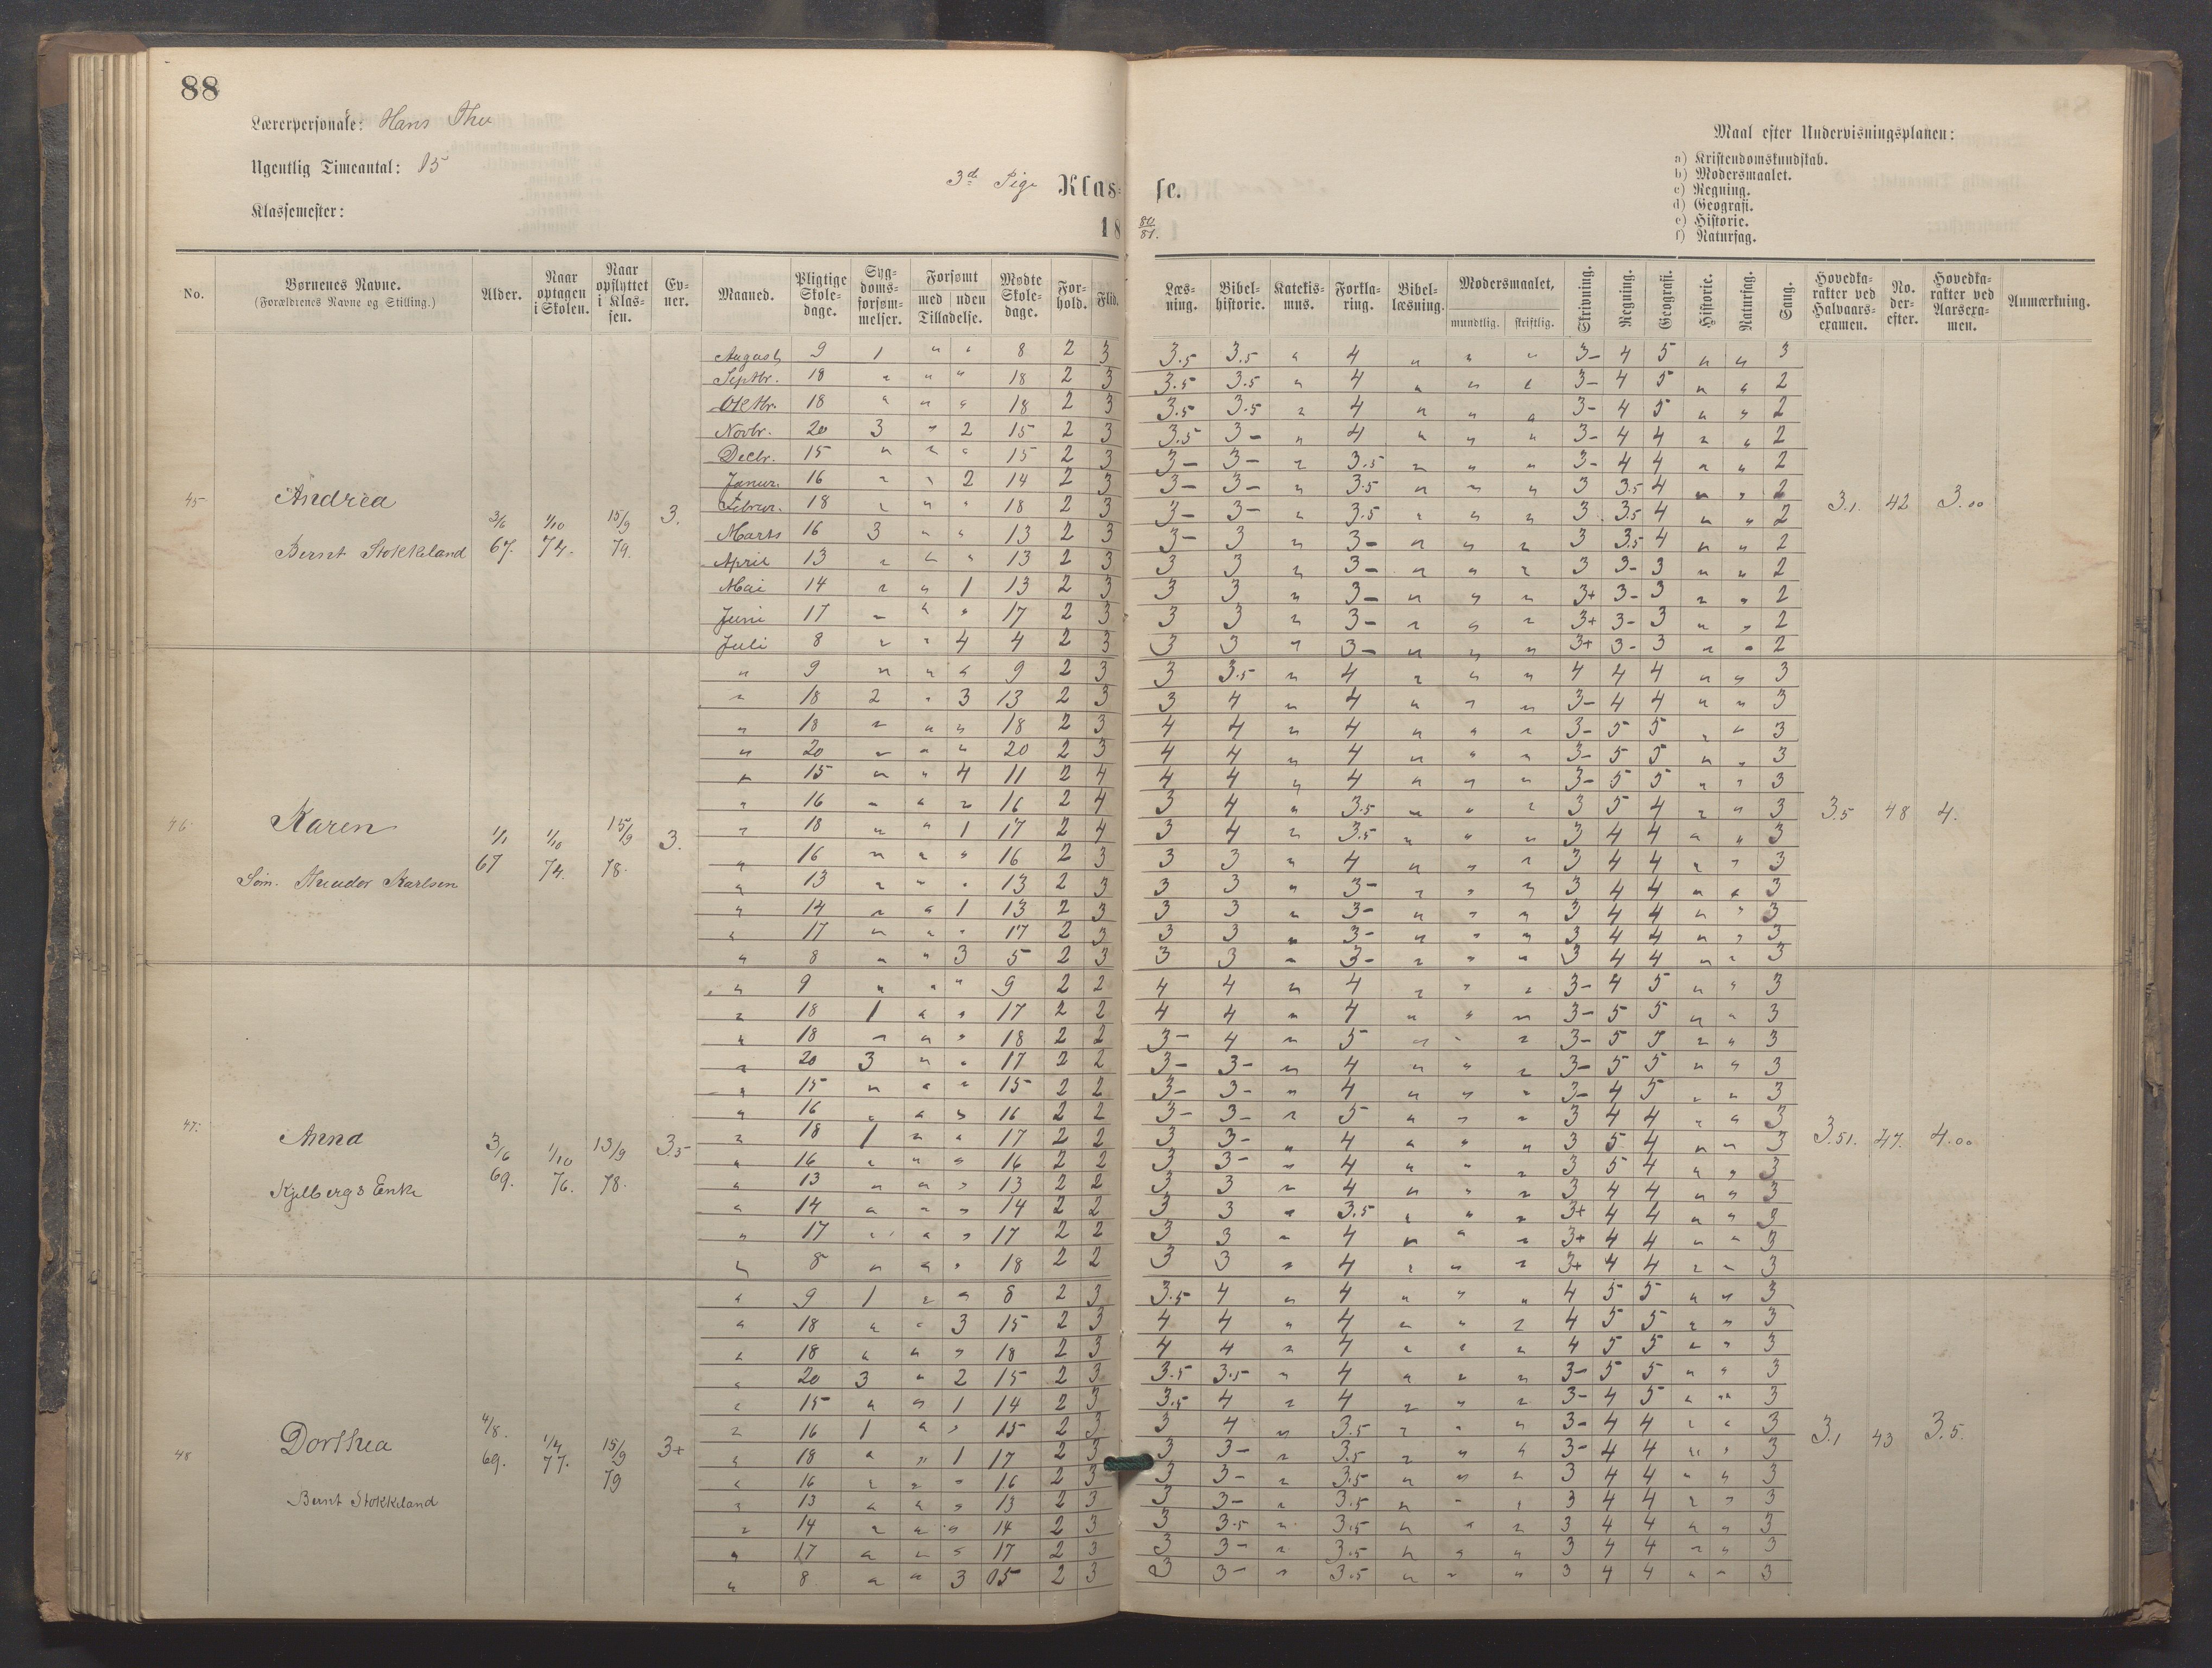 88
Lærerpersonale: Hans Thu
Ugentlig Timeantal: 15
Klassemester:
3de Pige Klas-
se.
18
80/81.
Maal efter Undervisningsplanen:
a) Kristendomskundskab.
b) Modersmaalet.
c) Regning.
d) Geografi.
e) Historie.
f) Naturfag.
No. Børnenes Navne. (Forældrenes Navne og Stilling.) Alder. Naar optagen i Skolen. Naar opflyttet i Klassen. Evner. Maaned. Pligtige Skoledage. Sygdomsforsømmelser. Forsømt med uden Tilladelse. Mødte Skoledage. Forhold. Flid. Læsning. Bibelhistorie. Katekismus. Forklaring. Bibellæsning. Modersmaalet, mundtlig. skriftlig. Skrivning. Regning. Geografi. Historie. Naturfag. Sang. Hovedkarakter ved Halvaarsexamen. No. derefter. Hovedkarakter ved Aarsexamen. Anmærkning.
45 Andrea
Bernt Stokkeland
3/6 67. 1/10 74. 15/9 79. 3. 3.1. 42 3.00
August 9 1 " " 8 2 3 3.5 3.5 " 4 " " " 3- 4 5 " " 3
Septbr. 18 " " " 18 2 3 3.5 3.5 " 4 " " " 3- 4 5 " " 2
Oktbr. 18 " " " 18 2 3 3.5 3.5 " 4 " " " 3- 4 5 " " 2
Novbr. 20 3 " 2 15 2 3 3.5 3- " 4 " " " 3- 4 4 " " 2
Decbr. 15 " " " 15 2 3 3- 3- " 3.5 " " " 3- 4 4 " " 2
Januar. 16 " " 2 14 2 3 3- 3- " 3.5 " " " 3 3.5 4 " " 2
Februar. 18 " " " 18 2 3 3- 3- " 3.5 " " " 3 3.5 4 " " 2
Marts 16 3 " " 13 2 3 3- 3 " 3- " " " 3 3.5 4 " " 2
April 13 " " " 13 2 3 3 3 " 3- " " " 3 3- 3 " " 2
Mai 14 " " 1 13 2 3 3 3 " 3- " " " 3+ 3- 3 " " 2
Juni 17 " " " 17 2 3 3 3 " 3- " " " 3+ 3- 3 " " 2
Juli 8 " " 4 4 2 3 3 3 " 3- " " " 3+ 3- 3 " " 2
46 Karen
Søm. Theodor Karlsen
1/1 67 1/10 74. 15/9 78. 3. 3.5 48 4.
" 9 " " " 9 2 3 3 3.5 " 4 " " " 4 4 4 " " 3
" 18 2 " 3 13 2 3 3 4 " 4 " " " 3- 4 4 " " 3
" 18 " " " 18 2 3 4 4 " 4 " " " 3- 5 5 " " 3
" 20 " " " 20 2 3 4 4 " 4 " " " 3- 5 5 " " 3
" 15 " " 4 11 2 4 4 4 " 4 " " " 3- 5 5 " " 3
" 16 " " " 16 2 4 3 4 " 3.5 " " " 3 5 4 " " 3
" 18 " " 1 17 2 4 3 4 " 3.5 " " " 3 4 4 " " 3
" 16 " " " 16 2 3 3 3 " 4 " " " 3 4 4 " " 3
" 13 " " " 13 2 3 3 3 " 3- " " " 3 4 4 " " 3
" 14 " " 1 13 2 3 3 3 " 3- " " " 3 4 4 " " 3
" 17 " " " 17 2 3 3 3 " 3- " " " 3 4 4 " " 3
" 8 " " 3 5 2 3 3 3 " 3- " " " 3 4 4 " " 3
47. Anna
Kjelbergs Enke
3/6 69. 1/10 76. 13/9 78. 3.5 3.51. 47. 4.00
" 9 " " " 9 2 2 4 4 " 4 " " " 3- 4 5 " " 3
" 18 1 " " 17 2 2 4 4 " 4 " " " 3- 5 5 " " 3
" 18 " " " 18 2 2 3- 4 " 5 " " " 3- 5 5 " " 3
" 20 3 " " 17 2 2 3- 3- " 4 " " " 3- 5 5 " " 3
" 15 " " " 15 2 2 3- 3- " 4 " " " 3- 4 5 " " 3
" 16 " " " 16 2 2 3- 3- " 5 " " " 3 4 4 " " 3
" 18 1 " " 17 2 2 3 3- " 4 " " " 3 5 4 " " 3
" 16 " " " 16 2 2 3 3- " 4 " " " 3 5 4 " " 3
" 13 " " " 13 2 2 3 3 " 4 " " " 3 4 4 " " 3
" 14 " " " 14 2 2 3 3 " 3.5 " " " 3+ 4 4 " " 3
" 17 " " " 17 2 2 3 3 " 4 " " " 3+ 4 4 " " 3
" 8 " " " 18 2 2 3 3 " 4 " " " 3+ 4 4 " " 3
48 Dorthea
Bernt Stokkeland
4/8. 69. 1/4 77. 15/9 79 3+ 3.1 43 3.5.
" 9 1 " " 8 2 3 3.5 4 " 4 " " " 4 5 5 " " 3
" 18 " " 3 15 2 3 4 4 " 4 " " " 4 5 5 " " 3
" 18 " " " 18 2 3 4 4 " 4 " " " 4 5 5 " " 3
" 20 3 " 2 15 2 3 3.5 3.5 " 4 " " " 3- 5 5 " " 3
" 15 " " 1 14 2 3 3.5 4 " 4 " " " 3- 4 5 " " 3
" 16 1 " " 15 2 3 3 4 " 3.5 " " " 3- 4 4 " " 3
" 18 " " 1 17 2 3 3 3- " 3.5 " " " 3- 4 4 " " 3
" 16 " " " 16 2 3 3 3- " 3.5 " " " 3 4 4 " " 3
" 13 " " " 13 2 3 3 3- " 3.5 " " " 3 4 4 " " 3
" 14 " " " 14 2 3 3 3.5 " 3.5 " " " 3 4 4 " " 3
" 17 " " " 17 2 3 3 3- " 3.5 " " " 3 4 4 " " 3
" 8 " " 3 05 2 3 3 3- " 3.5 " " " 3 4 4 " " 3